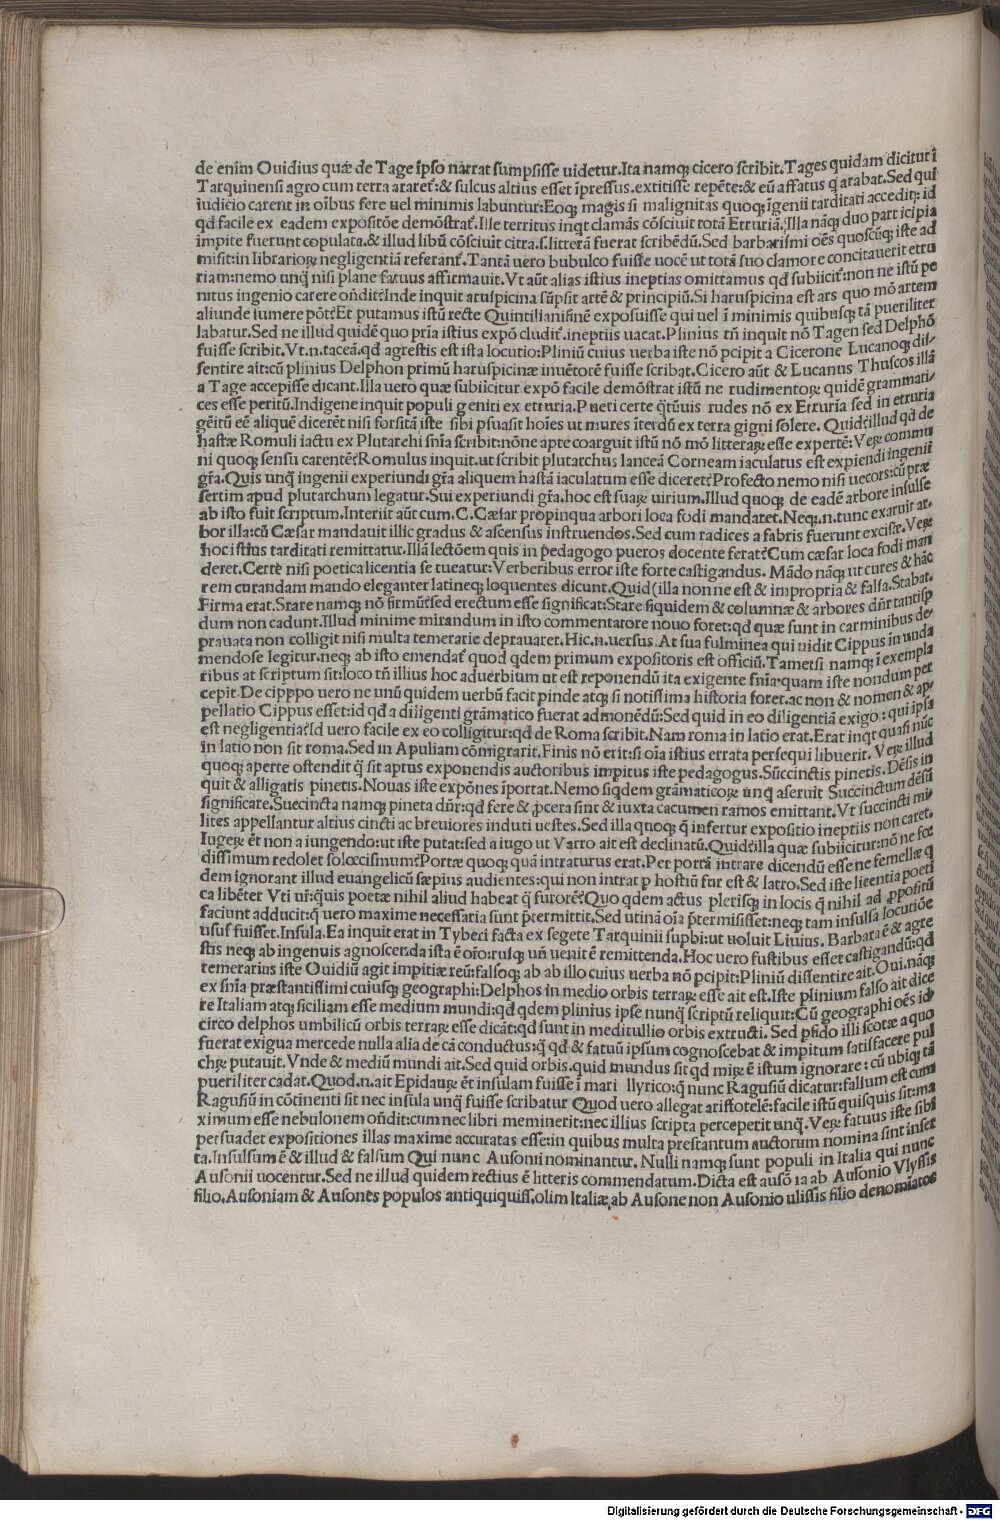 de enim Ouidius quæ de Tage ip̄so narrat sumpsisse uidetur. Ita namq; cicero scribit. Tages quidam dicitur ī
Tarquinensi agro cum terra araret̄:& sulcus altius esset īpressus. extitisse repēte:& eū affatus q̄ arabat. Sed qui
iudicio carent in oībus fere uel minimis labuntur: Eoq; magis si malignitas quoq; īgenii tarditati accedit: id
qd facile ex eadem expositōe demōstrat̄. Ille territus inqt clamās cōsciuit totā Etruriā. Illa nāq; duo participia
impite fuerunt copulata. & illud libū cōsciuit citra .s. litterā fuerat scribēdū. Sed barbarismi oēs quoscūq; iste ad
misit: in librarioꝝ negligentiā referant̄. Tantā uero bubulco fuisse uocē ut totā suo clamore concitauerit etru
riam: nemo unq̄ nisi plane fatuus affirmauit. Vt aūt alias istius ineptias omittamus qd subiicit̄: non ne istū pe
nitus ingenio carere oñdit? Inde inquit aruspicina sūpsit artē & principiū. Si haruspicina est ars quo mō artem
aliunde sumere pōt? Et putamus istū recte Quintilianisinē exposuisse qui uel ī minimis quibusq; tā pueriliter
labatur. Sed ne illud quidē quo pria istius expō cludit̄. ineptiis uacat. Plinius tñ inquit nō Tagen sed Delphō
fuisse scribit. Vt .n. taceā. qd agrestis est ista locutio: Pliniū cuius uerba iste nō pcipit a Cicerone Lucanoq; dis-
sentire ait: cū plinius Delphon primū haruspicinæ inuētorē fuisse scribat. Cicero aūt & Lucanus Thuscos illā
a Tage accepisse dicant. Illa uero quæ subiicitur expō facile demōstrat istū ne rudimentoꝝ quidē grammati-
ces esse peritū. Indigene inquit populi geniti ex etruria. Pueri certe q̄tūuis rudes nō ex Etruria sed in etruria
gēitū eē aliquē dicerēt nisi forsitā iste sibi psuasit hoīes ut mures īterdū ex terra gigni solere. Quid? illud qd de
hastæ Romuli iactu ex Plutarchi sñia scribit: nōne apte coarguit istū nō mō litteraꝝ esse expertē: Veꝝ commu
ni quoq; sensu carentē? Romulus inquit. ut scribit plutarchus lanceā Corneam iaculatus est expiendi ingenii
gr̄a. Quis unq̄ ingenii experiundi gr̄a aliquem hastā iaculatum esse diceret? Profecto nemo nisi uecors: cū præ
sertim apud plutarchum legatur. Sui experiundi gr̄a. hoc est suaꝝ uirium. Illud quoq; de eadē arbore insulse
ab isto fuit scriptum. Interiit aūt cum. C. Cæsar propinqua arbori loca fodi mandaret. Neq; .n. tunc exaruit ar-
bor illa: cū Cæsar mandauit illic gradus & ascensus instruendos. Sed cum radices a fabris fuerunt excisæ. Veꝝ
hoc istius tarditati remittatur. Illā lectōem quis in pedagogo pueros docente ferat? Cum cæsar loca fodi man
deret. Certe nisi poetica licentia se tueatur: Verberibus error iste forte castigandus. Mādo nāq; ut cures & hāc
rem curandam mando eleganter latineq; loquentes dicunt. Quid (illa non ne est & impropria & falsa. Stabat.
Firma erat. Stare namq; nō firmū: sed erectum esse significat: Stare siquidem & columnæ & arbores dñr tantisp
dum non cadunt. Illud minime mirandum in isto commentatore nouo foret: qd quæ sunt in carminibus de-
prauata non colligit nisi multa temerarie deprauaret. Hic .n. uersus. At sua fulminea qui uidit Cippus in unda
mendose legitur. neq; ab isto emendat̄ quod qdem primum expositoris est officiū. Tametsi namq; ī exempla
ribus at scriptum sit: loco tñ illius hoc aduerbium ut est reponendū ita exigente sñia quam iste nondum per
cepit. De cipppo uero ne unū quidem uerbū facit pinde atq; si notissima historia foret. ac non & nomen & ap-
pellatio Cippus esset: id qd a diligenti grāmatico fuerat admonēdū: Sed quid in eo diligentiā exigo: qui ipsa
est negligentia? Id uero facile ex eo colligitur: qd de Roma scribit. Nam roma in latio erat. Erat inqt quasi nūc
in latio non sit roma. Sed in Apuliam cōmigrarit. Finis nō erit: si oīa istius errata persequi libuerit. Veꝝ illud
quoq; aperte ostendit q̄ sit aptus exponendis auctoribus impitus iste pedagogus. Succinctis pinetis. Dēsis in
quit & alligatis pinetis. Nouas iste expōnes īportat. Nemo siqdem grāmaticoꝝ unq̄ aseruit Succinctum dēsū
significare. Succincta namq; pineta dñr: qd fere & pcera sint & iuxta cacumen ramos emittant. Vt succincti mi-
lites appellantur altius cincti ac breuiores induti uestes. Sed illa quoq; q̄ infertur expositio ineptiis non caret.
Iugeꝝ ēt non a iungendo: ut iste putat: sed a iugo ut Varro ait est declinatū. Quid? illa quæ subiicitur: nō ne foe
dissimum redolet solœcismum? Portæ quoq; quā intraturus erat. Per portā intrare dicendū esse ne femellæ q
dem ignorant illud euangelicū sæpius audientes: qui non intrat p hostiū fur est & latro. Sed iste licentia poeti
ca libēter Vti uī: q̄uis poetæ nihil aliud habeat q̄ furorē? Quo qdem actus pletisq; in locis q̄ nihil ad ppositū
faciunt adducit: q̄ uero maxime necessaria sunt ptermittit. Sed utinā oīa ptermisisset: neq; tam insulsa locutiōe
usus fuisset. Insula. Ea inquit erat in Tyberi facta ex segete Tarquinii supbi: ut uoluit Liuius. Barbara ē & agre
stis neq; ab ingenuis agnoscenda ista ē oīo: rusq; uñ uenit ē remittenda. Hoc uero fustibus esset castigandū: qd
temerarius iste Ouidiū agit impitiæ reū: falsoq; ab ab illo cuius uerba nō pcipit: Pliniū dissentire ait. Oui. nāq;
ex sñia præstantissimi cuiusq; geographi: Delphos in medio orbis terraꝝ esse ait est. Iste plinium falso ait dice
re Italiam atq; siciliam esse medium mundi: qd qdem plinius ipse nunq̄ scriptū reliquit: Cū geographi oēs id-
circo delphos umbilicū orbis terraꝝ esse dicāt: qd sunt in meditullio orbis extructi. Sed pfido illi scotæ a quo
fuerat exigua mercede nulla alia de cā conductus: q̄ qd & fatuū ipsum cognoscebat & impitum satisfacere pul
chꝝ putauit. Vnde & mediū mundi ait. Sed quid orbis. quid mundus sit qd miꝝ ē istum ignorare: cū ubiq; tā
pueriliter cadat. Quod .n. ait Epidauꝝ ēt insulam fuisse ī mari Illyrico: q̄ nunc Ragusiū dicatur: falsum est cum
Ragusiū in cōtinenti sit nec insula unq̄ fuisse scribatur Quod uero allegat aristotelē: facile istū quisquis sit: ma
ximum esse nebulonem oñdit: cum nec libri meminerit: nec illius scripta perceperit unq̄. Veꝝ fatuus iste sibi
persuadet expositiones illas maxime accuratas esse: in quibus multa prestantum auctorum nomina sint inser
ta. Insulsum ē & illud & falsum Qui nunc Ausonii nominantur. Nulli namq; sunt populi in Italia qui nunc
Ausonii uocentur. Sed ne illud quidem rectius ē litteris commendatum. Dicta est ausōia ab Ausonio Vlyssis
filio. Ausoniam & Ausones populos antiquiquiss. olim Italiæ, ab Ausone non Ausonio ulissis filio denomīatos
Digitalisierung gefördert durch die Deutsche Forschungsgemeinschaft - DFG